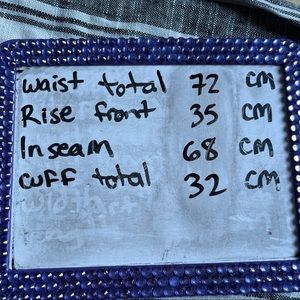 waist total 72 cm
Rise front 35 cm
Inseam 68 cm
cuff total 32 cm